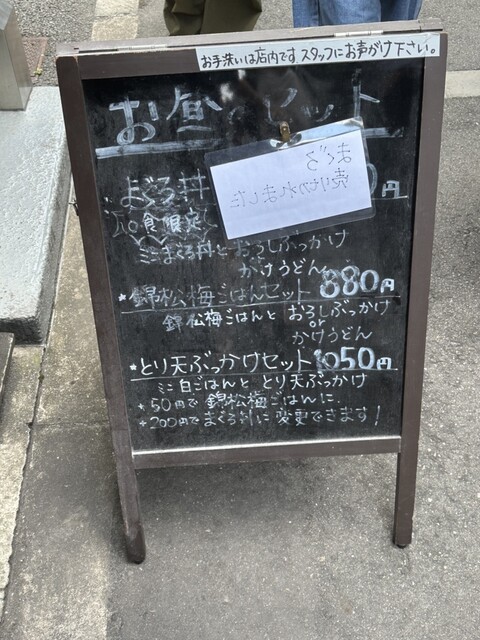 お手洗いは店内です。スタッフにお声がけ下さい。
お昼のセット
まぐろ
売り切れました
まぐろ丼
0円
10食限定
ミニまぐろ丼とおろしぶっかけ
かけうどん
★錦松梅ごはんセット 880円
錦松梅ごはんと おろしぶっかけ
or
かけうどん
★とり天ぶっかけセット 1050円
ミニ白ごはんと とり天ぶっかけ
+50円で錦松梅ごはんに
+200円でまぐろ丼に変更できます!